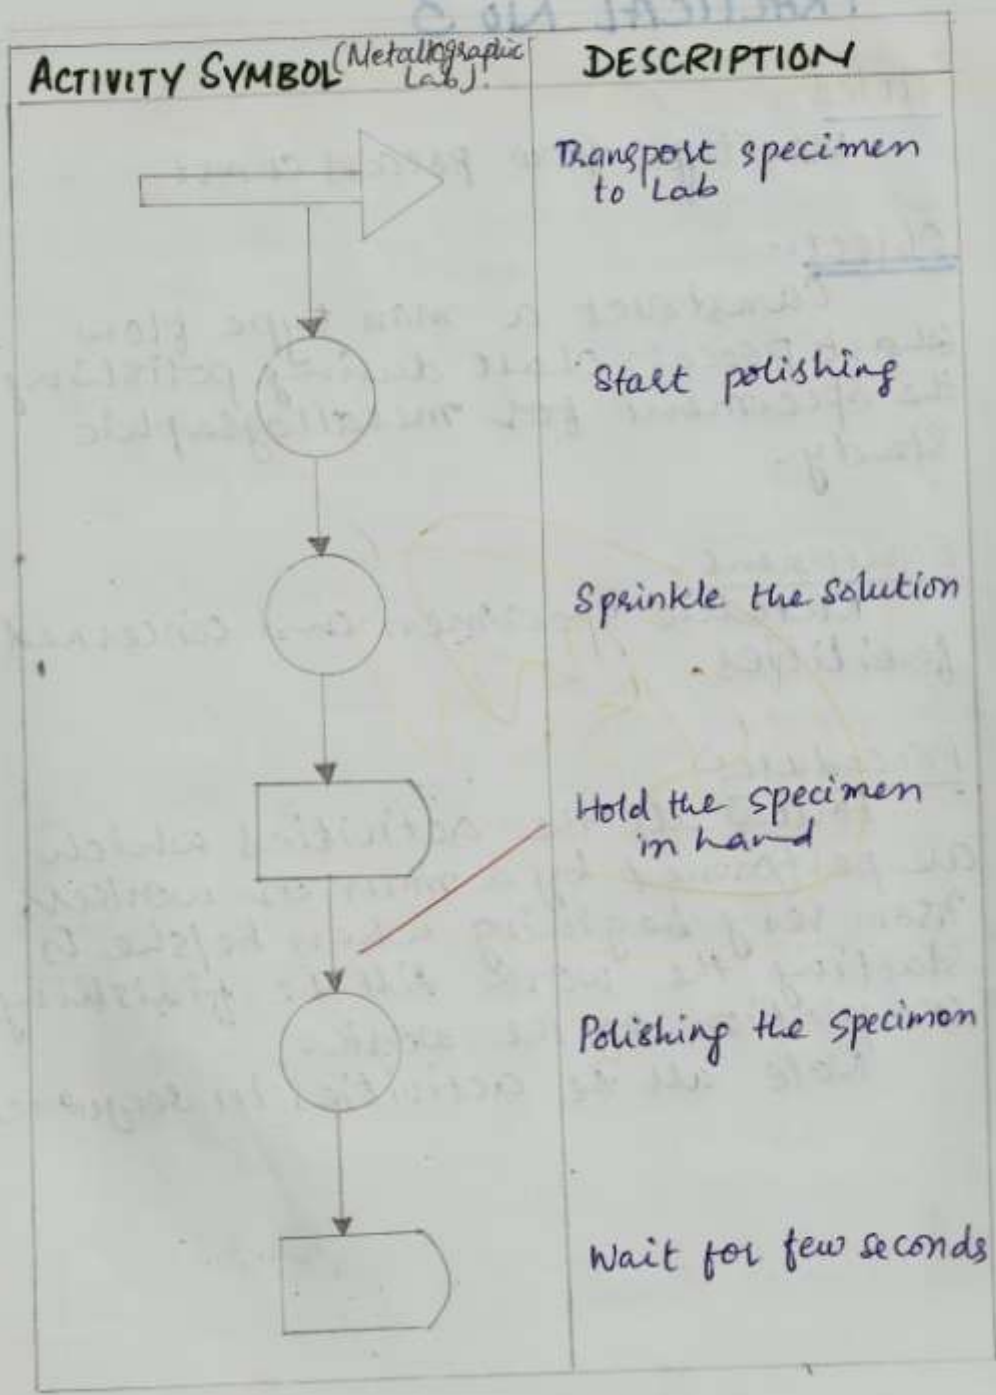 ACTIVITY SYMBOL (Metallographic
Lab).
DESCRIPTION
Transport specimen
to Lab
Start polishing
Sprinkle the solution
Hold the specimen
in hand
Polishing the specimen
Wait for few seconds